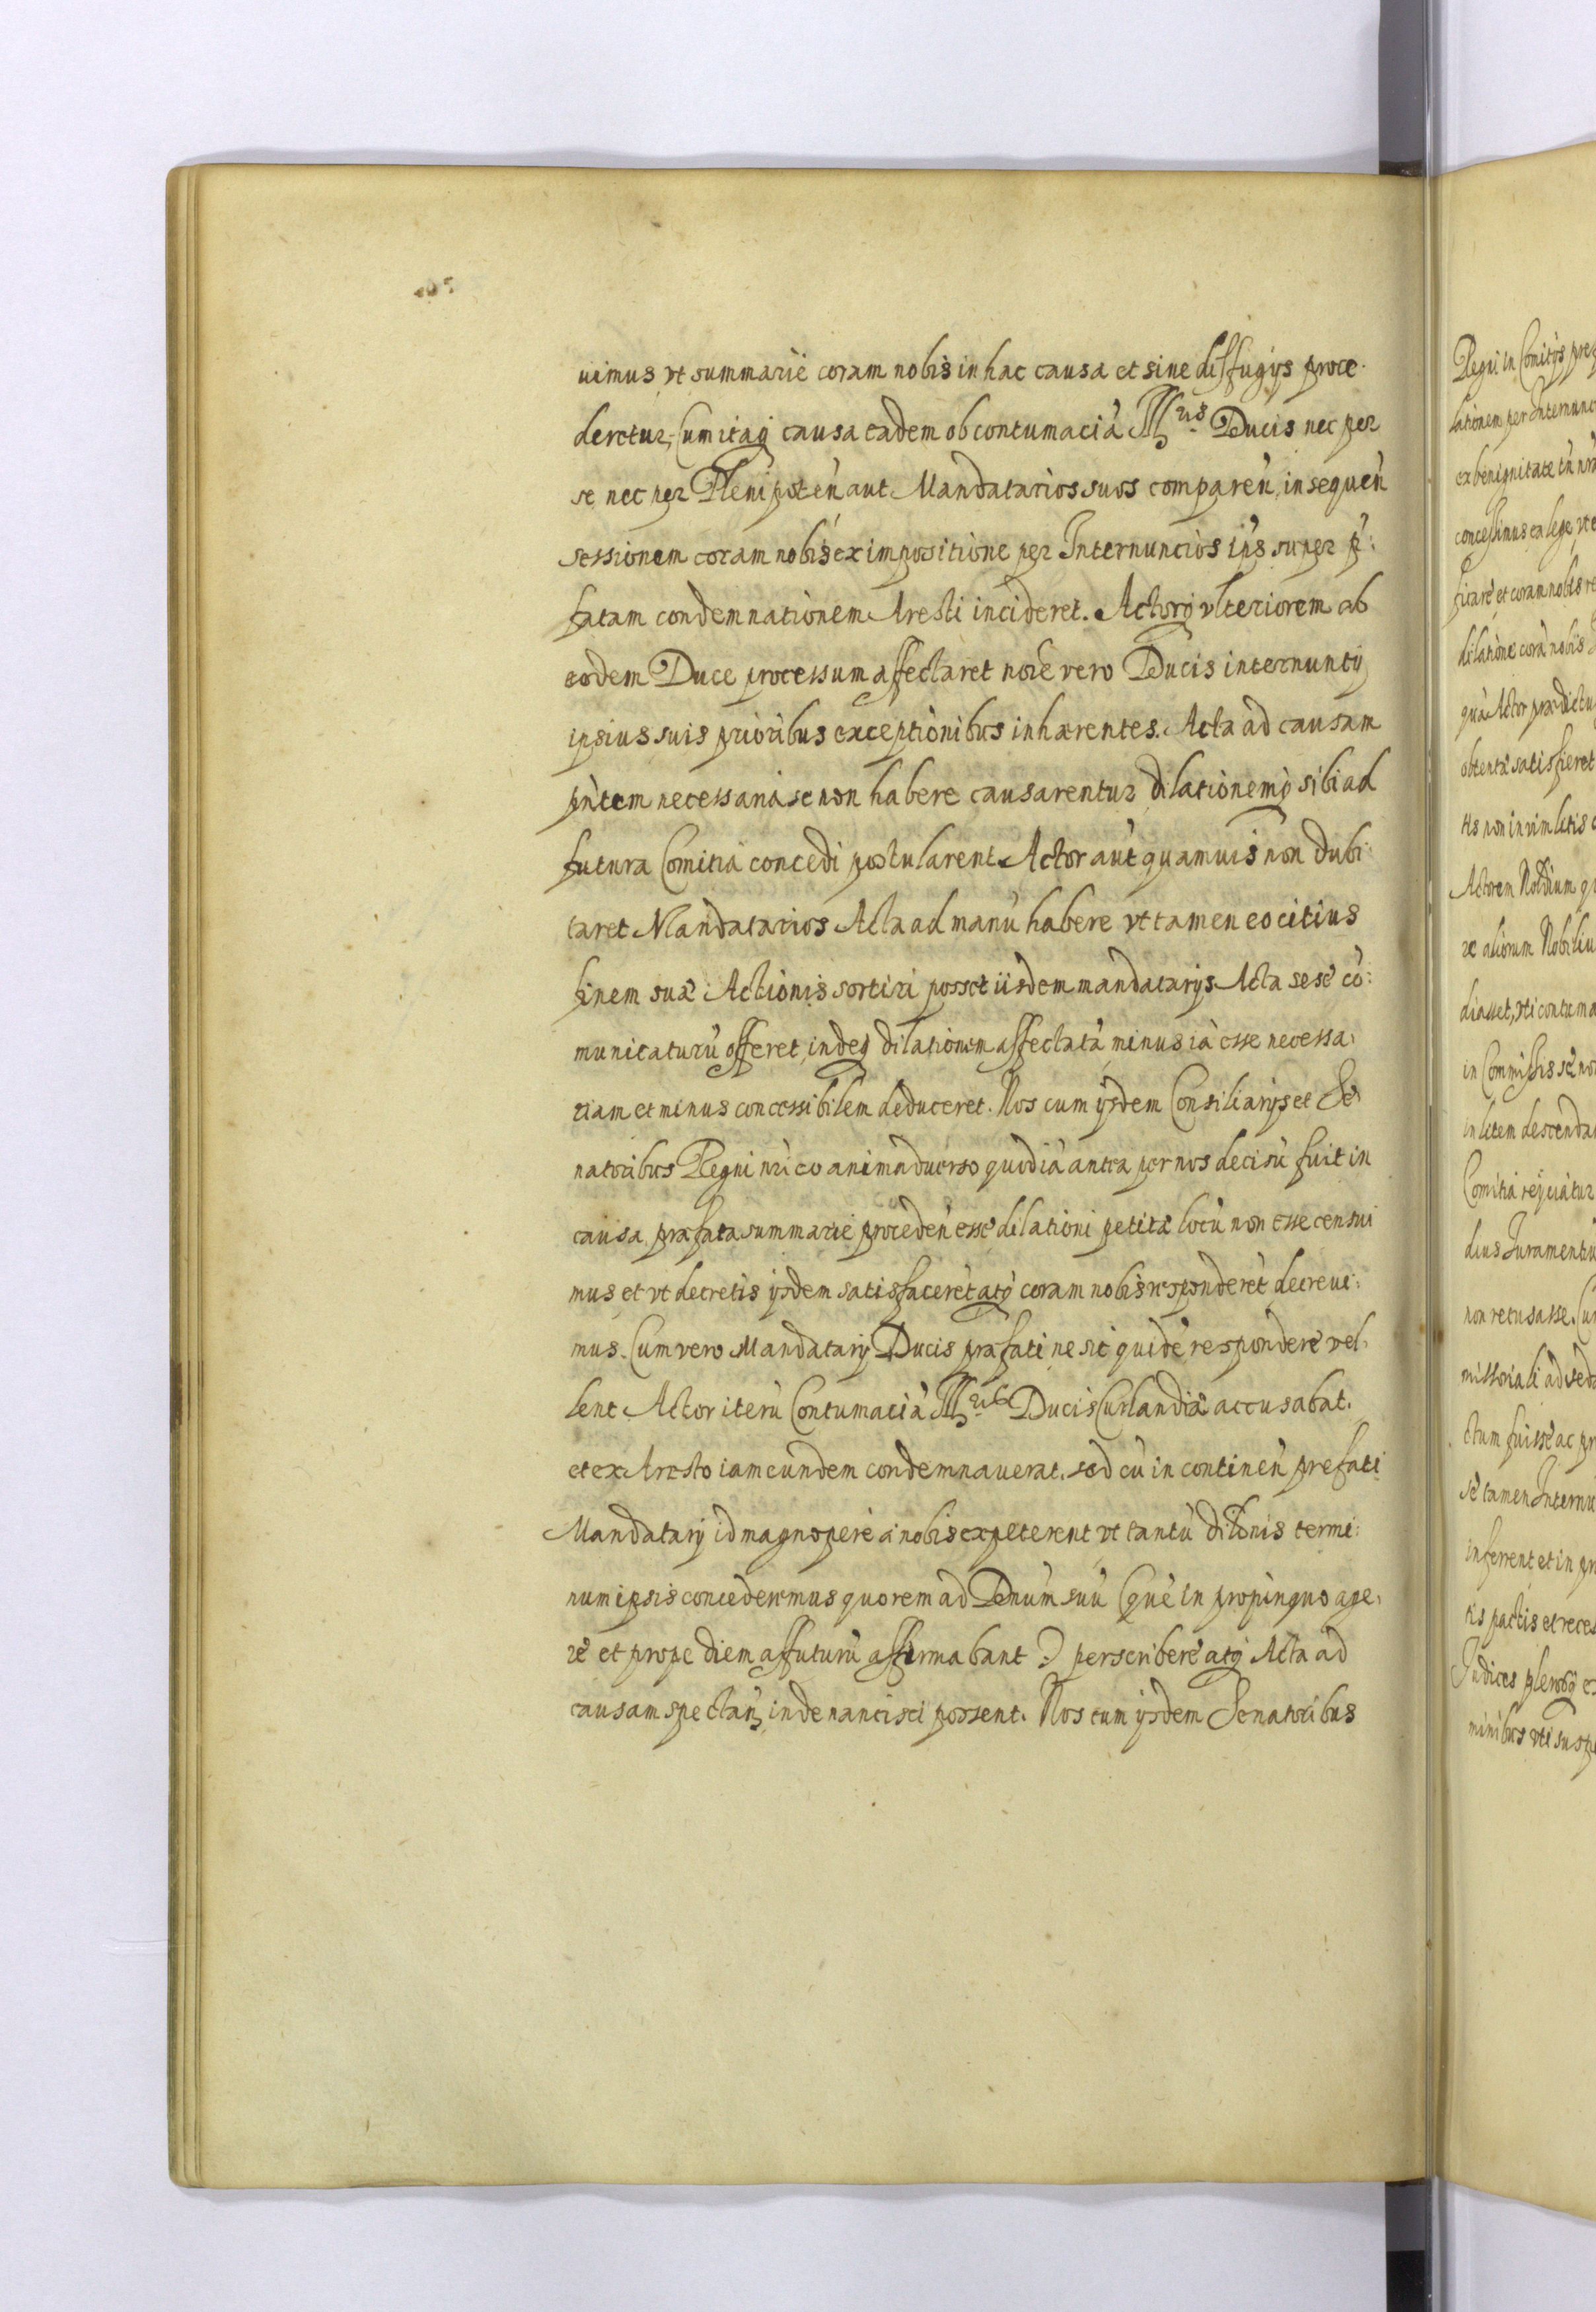 uimus vt summarie coram nobis in hac causa et sine diffugijs proce.
deretur, Cum itaq causa eadem ob contumaciã Illris Ducis nec per
se nec per Plenipoten̄ aut Mandatarios suos comparen̄, in sequen̄
sessionem coram nobis ex impositione per Internuncios ips̄ super p̄:
fatam condemnationem Aresti incideret. Actorq vlteriorem ab
eodem Duce processum affectaret noīe vero Ducis internuntij
ipsius suis prioribus exceptionibus inhærentes. Acta ad causam
pñtem necessaria se non habere causarentur dilationemq sibi ad
futura Comitia concedi postularent. Actor aūt quamuis non dubi:
taret Mandatarios Acta ad manū habere vt tamen eo citius
finem suæ Actionis sortiri posset iisdem mandatarijs Acta sese cō:
municaturū offeret, indeq dilationem affectatã minus iã esse necessa:
riam et minus concessibilem deduceret. Nos cum ijsdem Consiliarijs et Se
natoribus Regni nri eo animaduerso quod iã antea per nos decisū fuit in
causa præfata summarie proceden̄ esse dilationi petitæ locū non esse censui
mus et vt decretis ijsdem satisfaceret atq coram nobis responderet decreui:
mus. Cum vero Mandatarij Ducis præfati ne sic quidē respondere vel:
lent Actor iterū Contumaciã Illris Ducis Curlandiæ accusabat.
et ex Aresto iam eundem condemnauerat. sed cū in continen̄ prefati
Mandatarij id magnopere a nobis expeterent vt tantū dilōnis termi:
num ipsis concederemus quo rem ad Dnum suū (quē in propinquo age:
re et prope diem affuturū affirmabant) perscribere atq Acta ad
causam spectan̄ inde nancisci possent. Nos cum ijsdem Senatoribus
Regni in Comitijs
lationem per
ex benignitate
concessimus ea lege vt
et coram nobis
dilatione corã nobis
quã Actor prædictu
obtentæ satisfieret
Actorem
aliorum
in litem
Comitia
non recusasse.
ctum fuisse ac
se tamen
inferent et in
tis pactis et
Judices
minibus vti